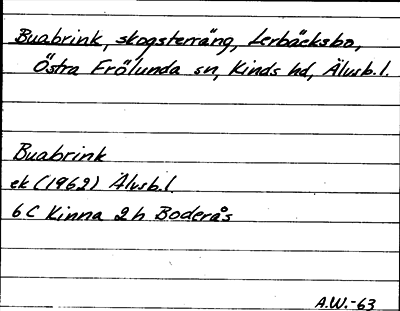 Buabrink, skogsterräng, Lerbäcksbo,
Östra Frölunda sn, Kinds hd, Älvsb.l.
Buabrink
ek (1962) Älvsb.l.
6C Kinna 2h Boderås
A.W.-63